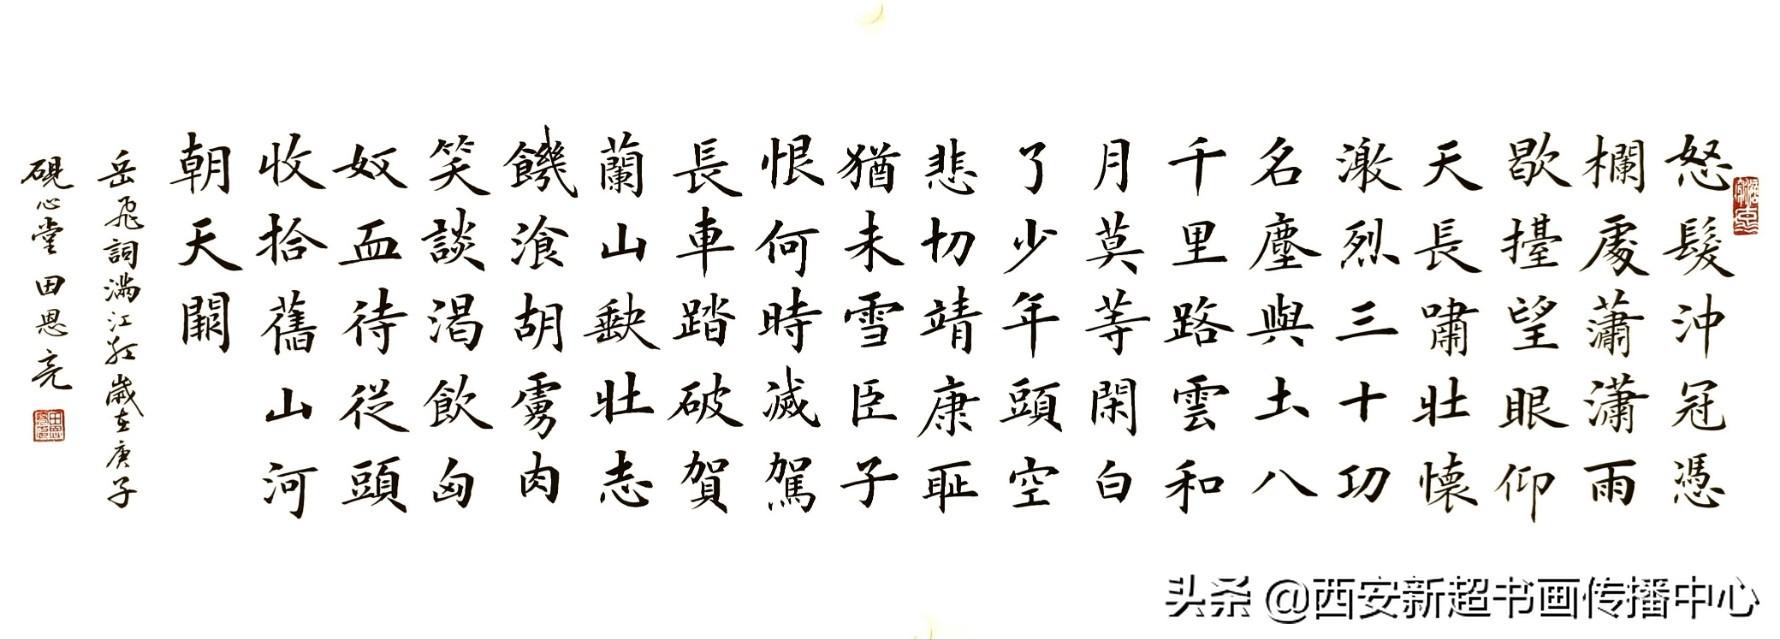 怒髮沖冠憑
欄處蕭瀟雨
歇擡望眼仰
天長嘯壯懷
激烈三十功
名塵與土八
千里路雲和
月莫等閑白
了少年頭空
悲切靖康耻
猶未雪臣子
恨何時滅駕
長車踏破賀
蘭山缺壯志
饑湌胡虜肉
笑談渴飲匈
奴血待從頭
收拾舊山河
朝天闕
岳飛詞滿江紅歲在庚子
硯心堂田恩亮
头条 @西安新超书画传播中心